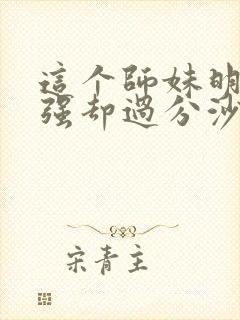 這个師妹明
强却過分沙
宋青主